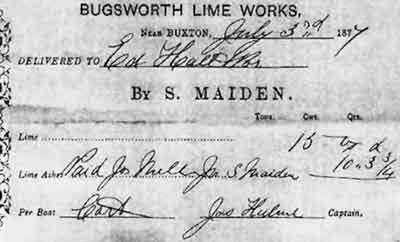 BUGSWORTH LIME WORKS,
NEAR BUXTON, July 3rd 1877
DELIVERED TO Ed Hall
BY S. MAIDEN.
Tons. Cwt. Qrs.
Lime 15
Lime Ashes Paid Jos Mills for S Maiden 10.. 3 3/4
Per Boat Jas Hulme Captain.